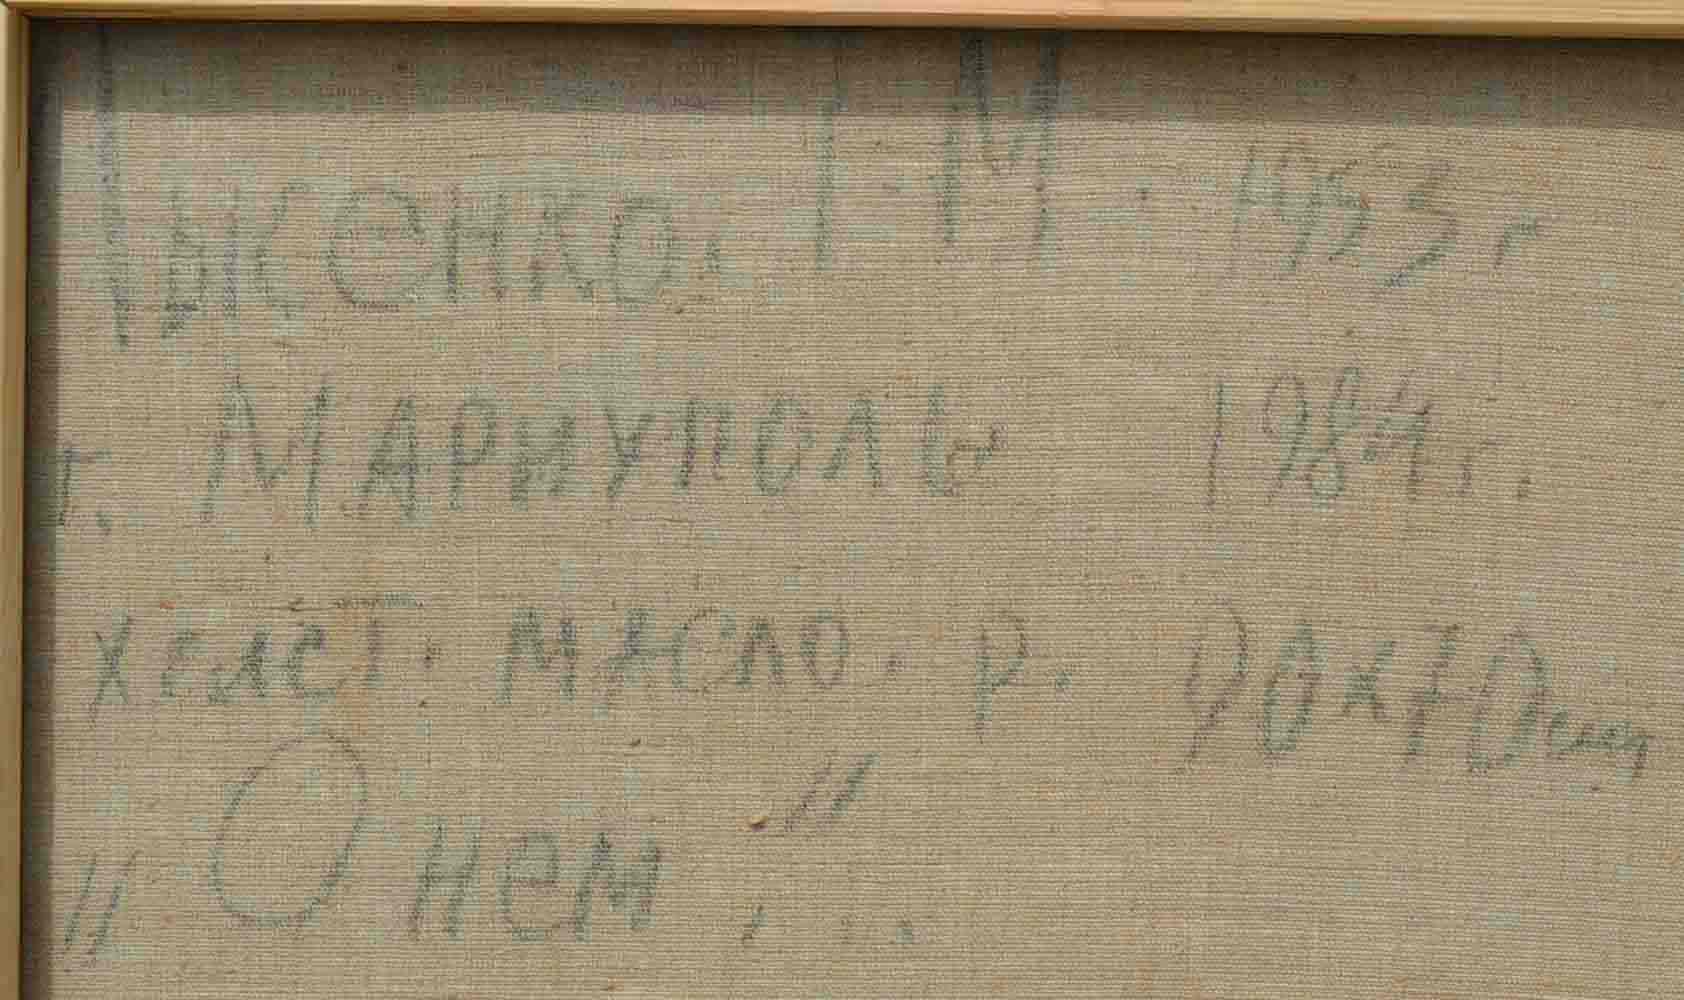 Лысенко. Г. М. 1953 г
г. Мариуполь 1984 г.
холст. масло. р. 90х70см
"О нем..."